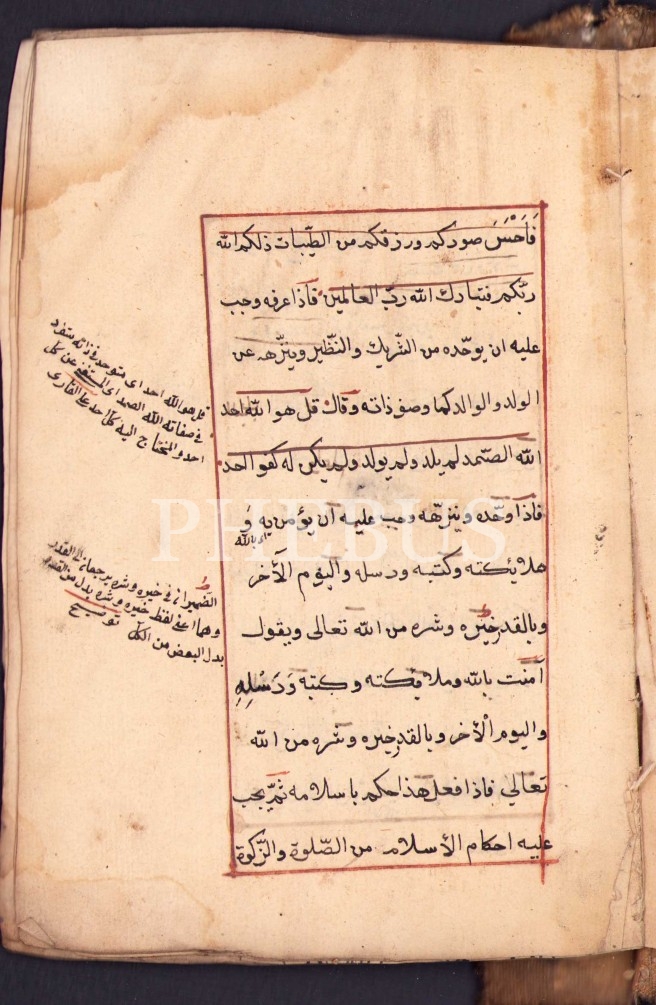 فَاَحْسَنَ صوركم ورزقكم من الطّيبات ذلكم الله
ربّكم فتبارك الله ربّ العالمين فاذا عرفه وجب
عليه ان يوحّده من الشّريك والنّظير وينزّهه عن
الولد والوالد كما وصف ذاته وقال قل هو الله احد
الله الصّمد لم يلد ولم يولد ولم يكن له كفوا احد
فاذا وحّده ونزّهه وجب عليه ان يؤمن به وَ
اى بالله
ملائكته وكتبه ورسله واليوم الآخر
وبالقدر خيره وشره من الله تعالى ويقول
آمنت بالله وملائكته وكتبه وَرَسُلِهِ
واليوم الْاخر وبالقدر خيره وشره من الله
تعالى فاذا فعل هذا حكم باسلامه ثمّ يجب
عليه احكام الاسلام من الصّلوة والزّكوة
قل هو الله احد اى متوحد فى ذاته متفرد
فى صفاته الله الصمد اى عن كل
احد والمحتاج اليه كل احد على القارى
الضميران فى خيره وشره يرجعان الى القدر
وهما اعنى لفظ خيره وشره بدل من القدر
بدل البعض من الكل توضيح
PHEBUS